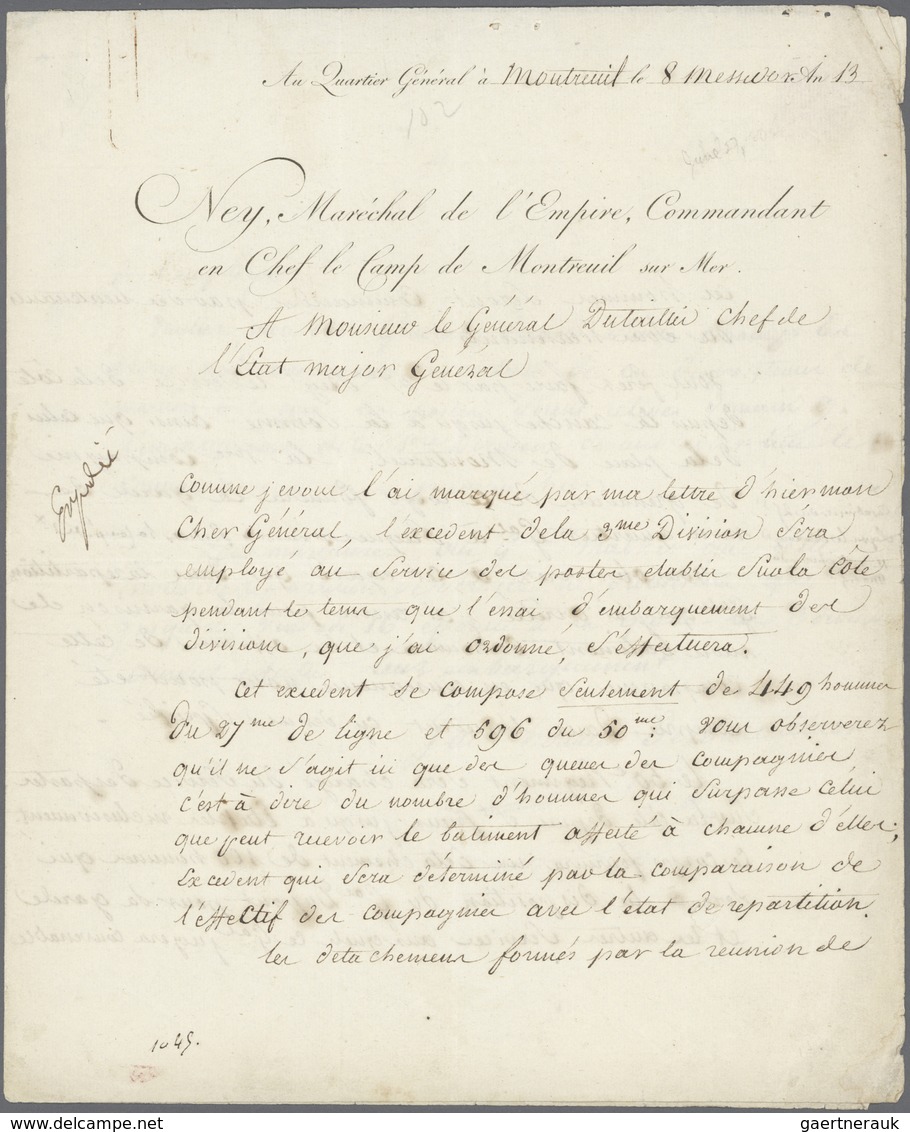 Au Quartier Général à Montreuil le 8 Messidor An 13
102
Ney, Maréchal de l'Empire, Commandant
en Chef le Camp de Montreuil sur Mer.
A Monsieur le Général Dutaillis chef de
l'Etat major Général
Expedié
Comme je vous l'ai marqué par ma lettre d'hier mon
Cher Général, l'excedent de la 3me Division Sera
employé au Service des postes etablis Sur la Côte
pendant le tems que l'essai d'embarquement des
divisions, que j'ai ordonné, S'effectuera.
Cet excedent Se compose Seulement de 449 hommes
du 27me de ligne et 596 du 50me: vous observerez
qu'il ne S'agit ici que des queues des compagnies
c'est à dire du nombre d'hommes qui Surpasse Célui
que peut recevoir le bâtiment affecté à chacune d'elles;
Excedent qui Sera déterminé par la comparaison de
l'effectif des compagnies avec l'état de repartition.
les detachemens formés par la reunion de
1045.
delcampe.net
gaertnerauk